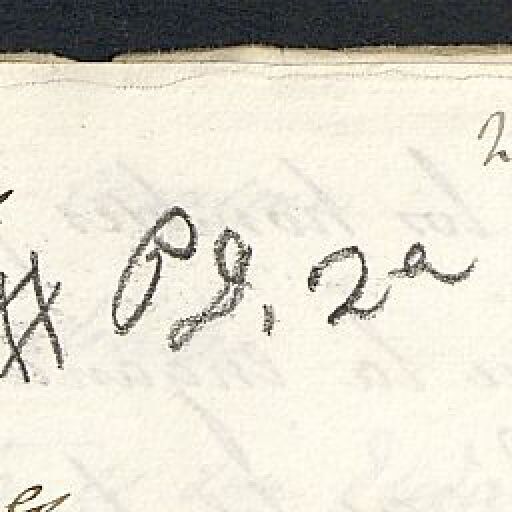 # Pg. 2a